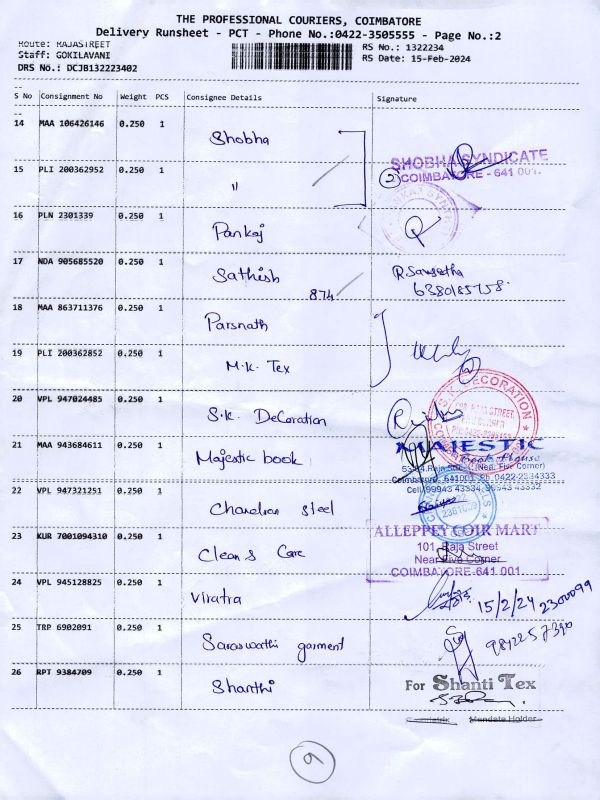 THE PROFESSIONAL COURIERS, COIMBATORE
Delivery Runsheet - PCT - Phone No.:0422-3505555 - Page No.:2
Route: RAJASTREET
RS No.: 1322234
Staff: GOKILAVANI
RS Date: 15-Feb-2024
DRS No.: DCJB132223402
S No Consignment No Weight PCS Consignee Details Signature
14 MAA 106426146 0.250 1 Shobha
SHOBHA SYNDICATE
COIMBATORE - 641 001.
15 PLI 200362952 0.250 1 "
16 PLN 2301339 0.250 1 Pankaj
17 NDA 905685520 0.250 1 Sathish 874
18 MAA 863711376 0.250 1 Parsnath
19 PLI 200362852 0.250 1 M.K. Tex
20 VPL 947024485 0.250 1 S.K. Decoration
S.K. DECORATION
21 MAA 943684611 0.250 1 Majestic book
MAJESTIC
Book House
Raja Street (Near. Five Corner)
Coimbatore - 641001. Ph: 0422-2334333
22 VPL 947321251 0.250 1 Chandran Steel
23 KUR 7001094310 0.250 1 Clean & Care
ALLEPPEY COIR MART
101, Raja Street
Near Five Corner
COIMBATORE-641 001.
24 VPL 945128825 0.250 1 Viratra
15/2/24
25 TRP 6902091 0.250 1 Saraswathi garment
26 RPT 9384709 0.250 1 Shanthi
For Shanti Tex
Mandate Holder
9